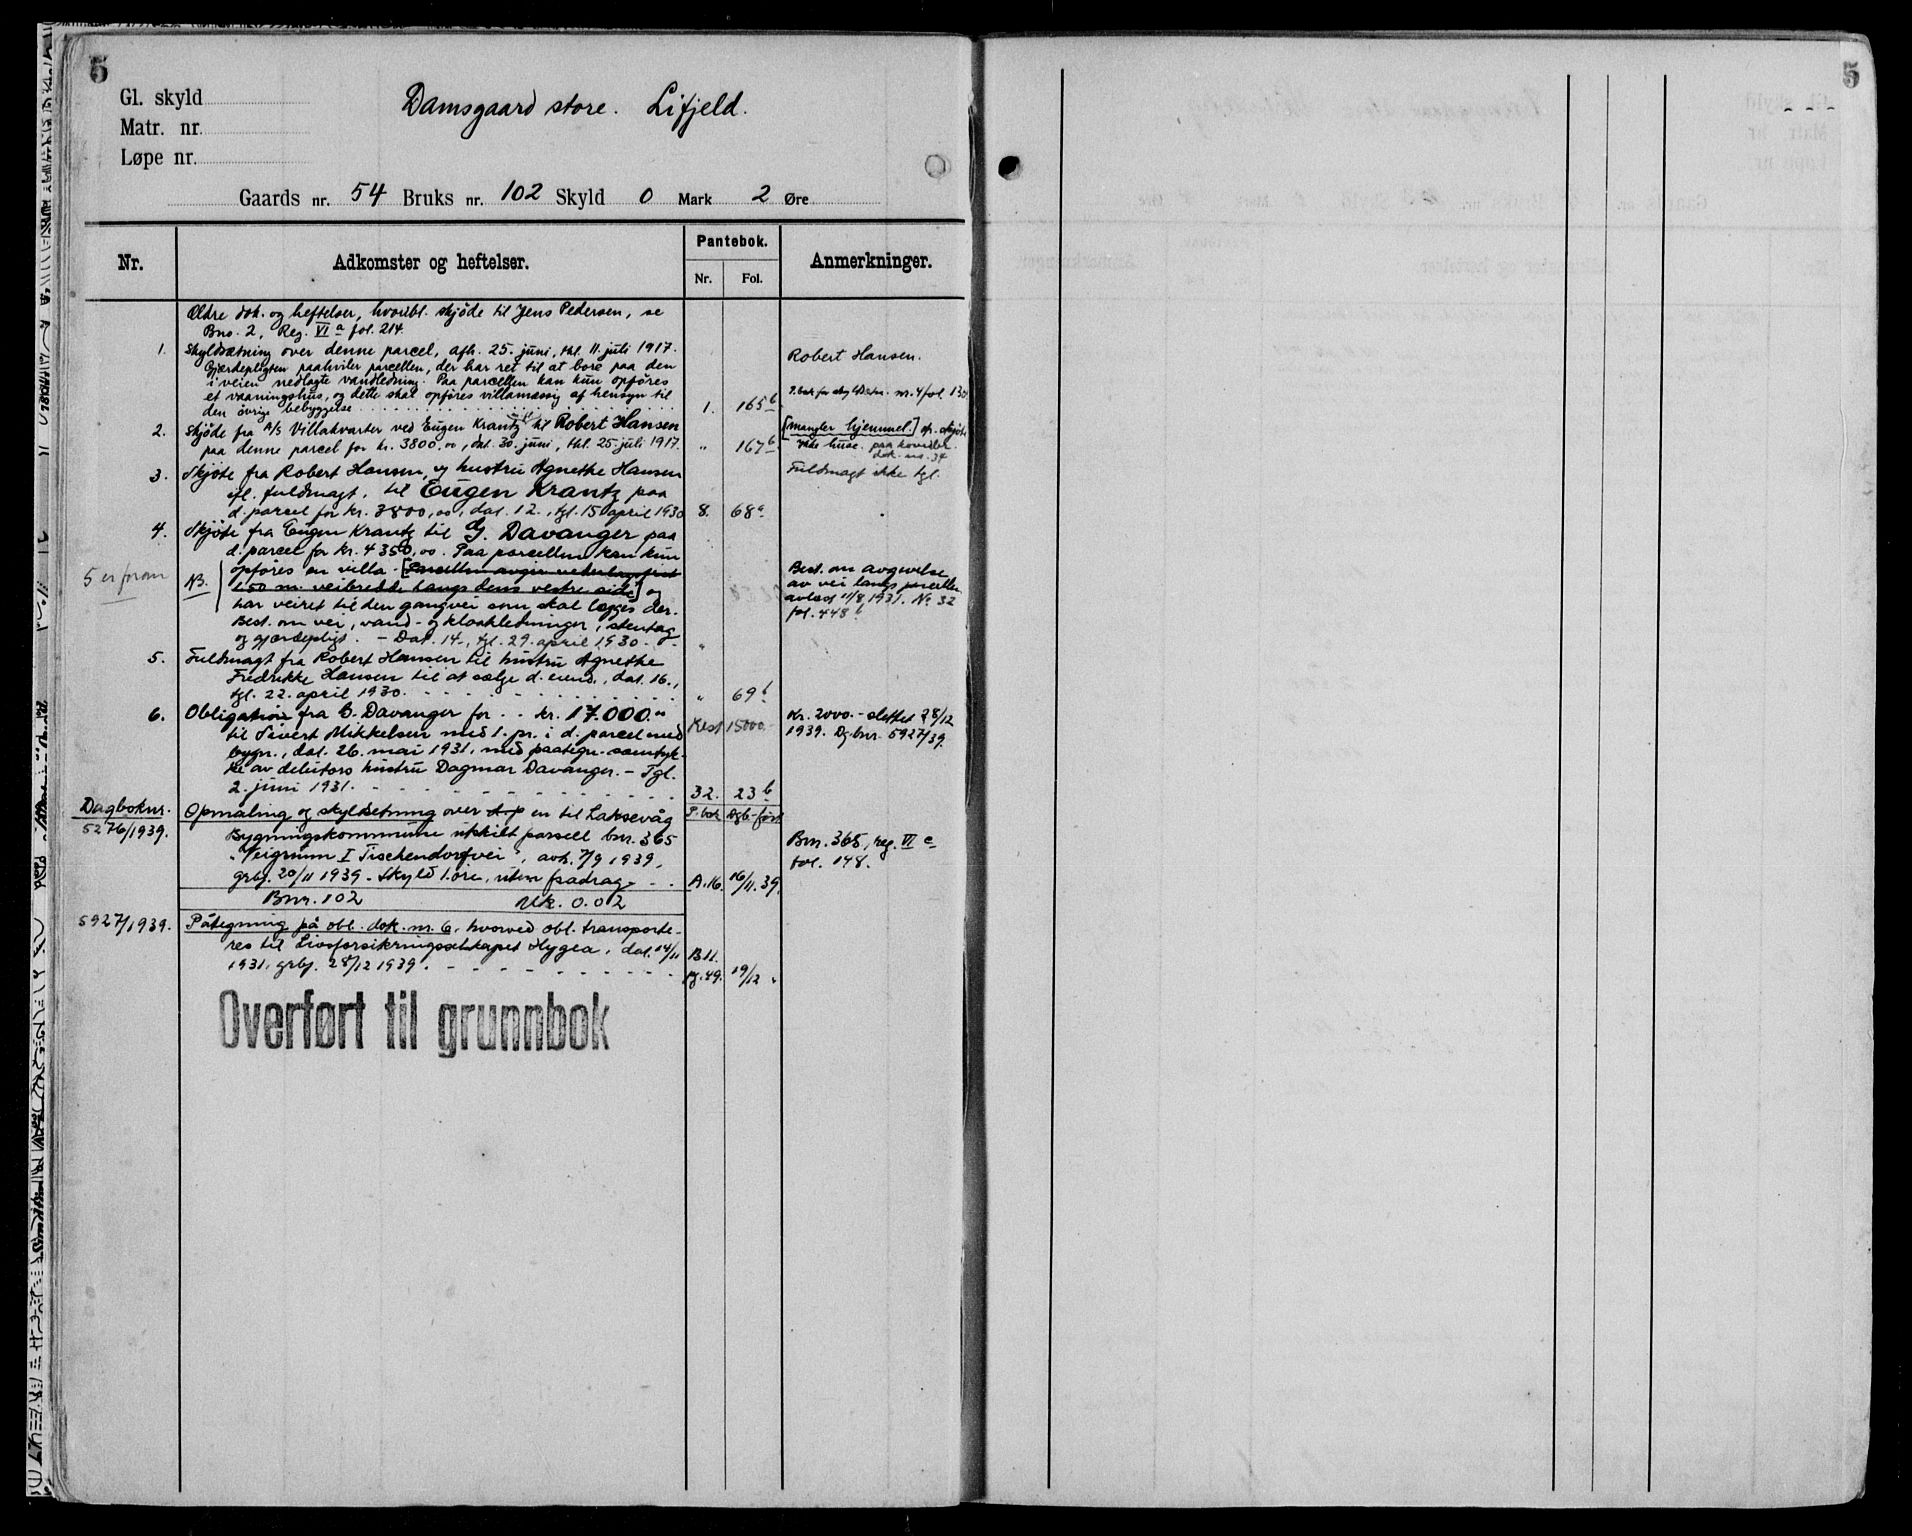 5
Gl. skyld
Matr. nr.
Løpe nr.
Damsgaard store. Lifjeld.
Gaards nr. 54 Bruks nr. 102 Skyld 0 Mark 2 Øre
Nr.
Adkomster og heftelser.
Pantebok.
Nr. Fol.
Anmerkninger.
Ældre dok. og heftelser, hvoribl. skjøde til Jens Pedersen, se
Bno. 2, Reg. VI a fol. 214.
1. Skyldsætning over denne parcel, afh. 25. juni, thl. 11. juli 1917.
Gjærdepligten paahviler parcellen, der har ret til at bore paa den
i veien nedlagte vandledning. Paa parcellen kan kun opføres
et vaaningshus, og dette skal opføres villamæssig af hensyn til
den øvrige bebyggelse 1. 165 b
Robert Hansen.
P.bok for skyldsetn. nr. 4 fol. 130
2. Skjøde fra A/S Villakvarter ved Eugen Krantz til Robert Hansen
paa denne parcel for kr. 3800,00, dat. 30. juni, thl. 25. juli 1917. " 167 b
[mangler hjemmel.] skjøte
ikke huse. paa hovedbr.
dok. nr. 34
3. Skjøte fra Robert Hansen, og hustru Agnethe Hansen
ifl. fuldmagt, til Eugen Krantz paa
d. parcel for kr. 3800,00, dat. 12., tgl. 15 april 1930 8. 68 a
Fuldmagt ikke tgl.
4. Skjøte fra Eugen Krantz til G. Davanger paa
d. parcel for kr. 4350,00. Paa parcellen kan kun
opføres en villa. [Parcellen avgir vederlagsfrit
NB. 1.50 m. veibredde langs dens vestre side] og
har veiret til den gangvei som skal lægges der.
Best. om vei, vand- og kloakledninger, stentag
og gjærdepligt. - Dat. 14., tgl. 29. april 1930 - "
5 er foran
Best. om avgivelse
av vei langs parcellen
avlæst 11/8 1931. No 32
fol. 448 b
5. Fuldmagt fra Robert Hansen til hustru Agnethe
Fredrikke Hansen til at sælge d. eiend., dat. 16.,
tgl. 22. april 1930. " 69 b
6. Obligation fra G. Davanger for kr. 17.000.00
til Sivert Mikkelsen med 1. pr. i d. parcel med
bygn., dat. 26. mai 1931, med paategn. samtyk-
ke av debitors hustru Dagmar Davanger. - Tgl.
2. juni 1931. 32. 23 b
Rest 15000.-
Kr. 2000.- slettet 28/12
1939. Dgbnr. 5927/39.
Dagboknr.
5276/1939.
P.bok Dgb-ført
Opmåling og skyldsetning over en til Laksevåg
Bygningskommune utskilt parsell bnr. 365
"Veigrunn I Tischendorfvei", avh. 7/9 1939,
grbj. 20/11 1939. Skyld 1 øre, uten fradrag. A. 16. 16/11. 39.
Bnr. 365, reg. VI c
fol. 148.
Bnr. 102 Mk. 0.02
5927/1939. Påtegning på obl. dok. nr. 6, hvorved obl. transporte-
res til Livsforsikringsselskapet Hygea, dat. 14/11
1931, grbj. 28/12 1939. B 11.
pg. 49. 19/12 "
Overført til grunnbok
5